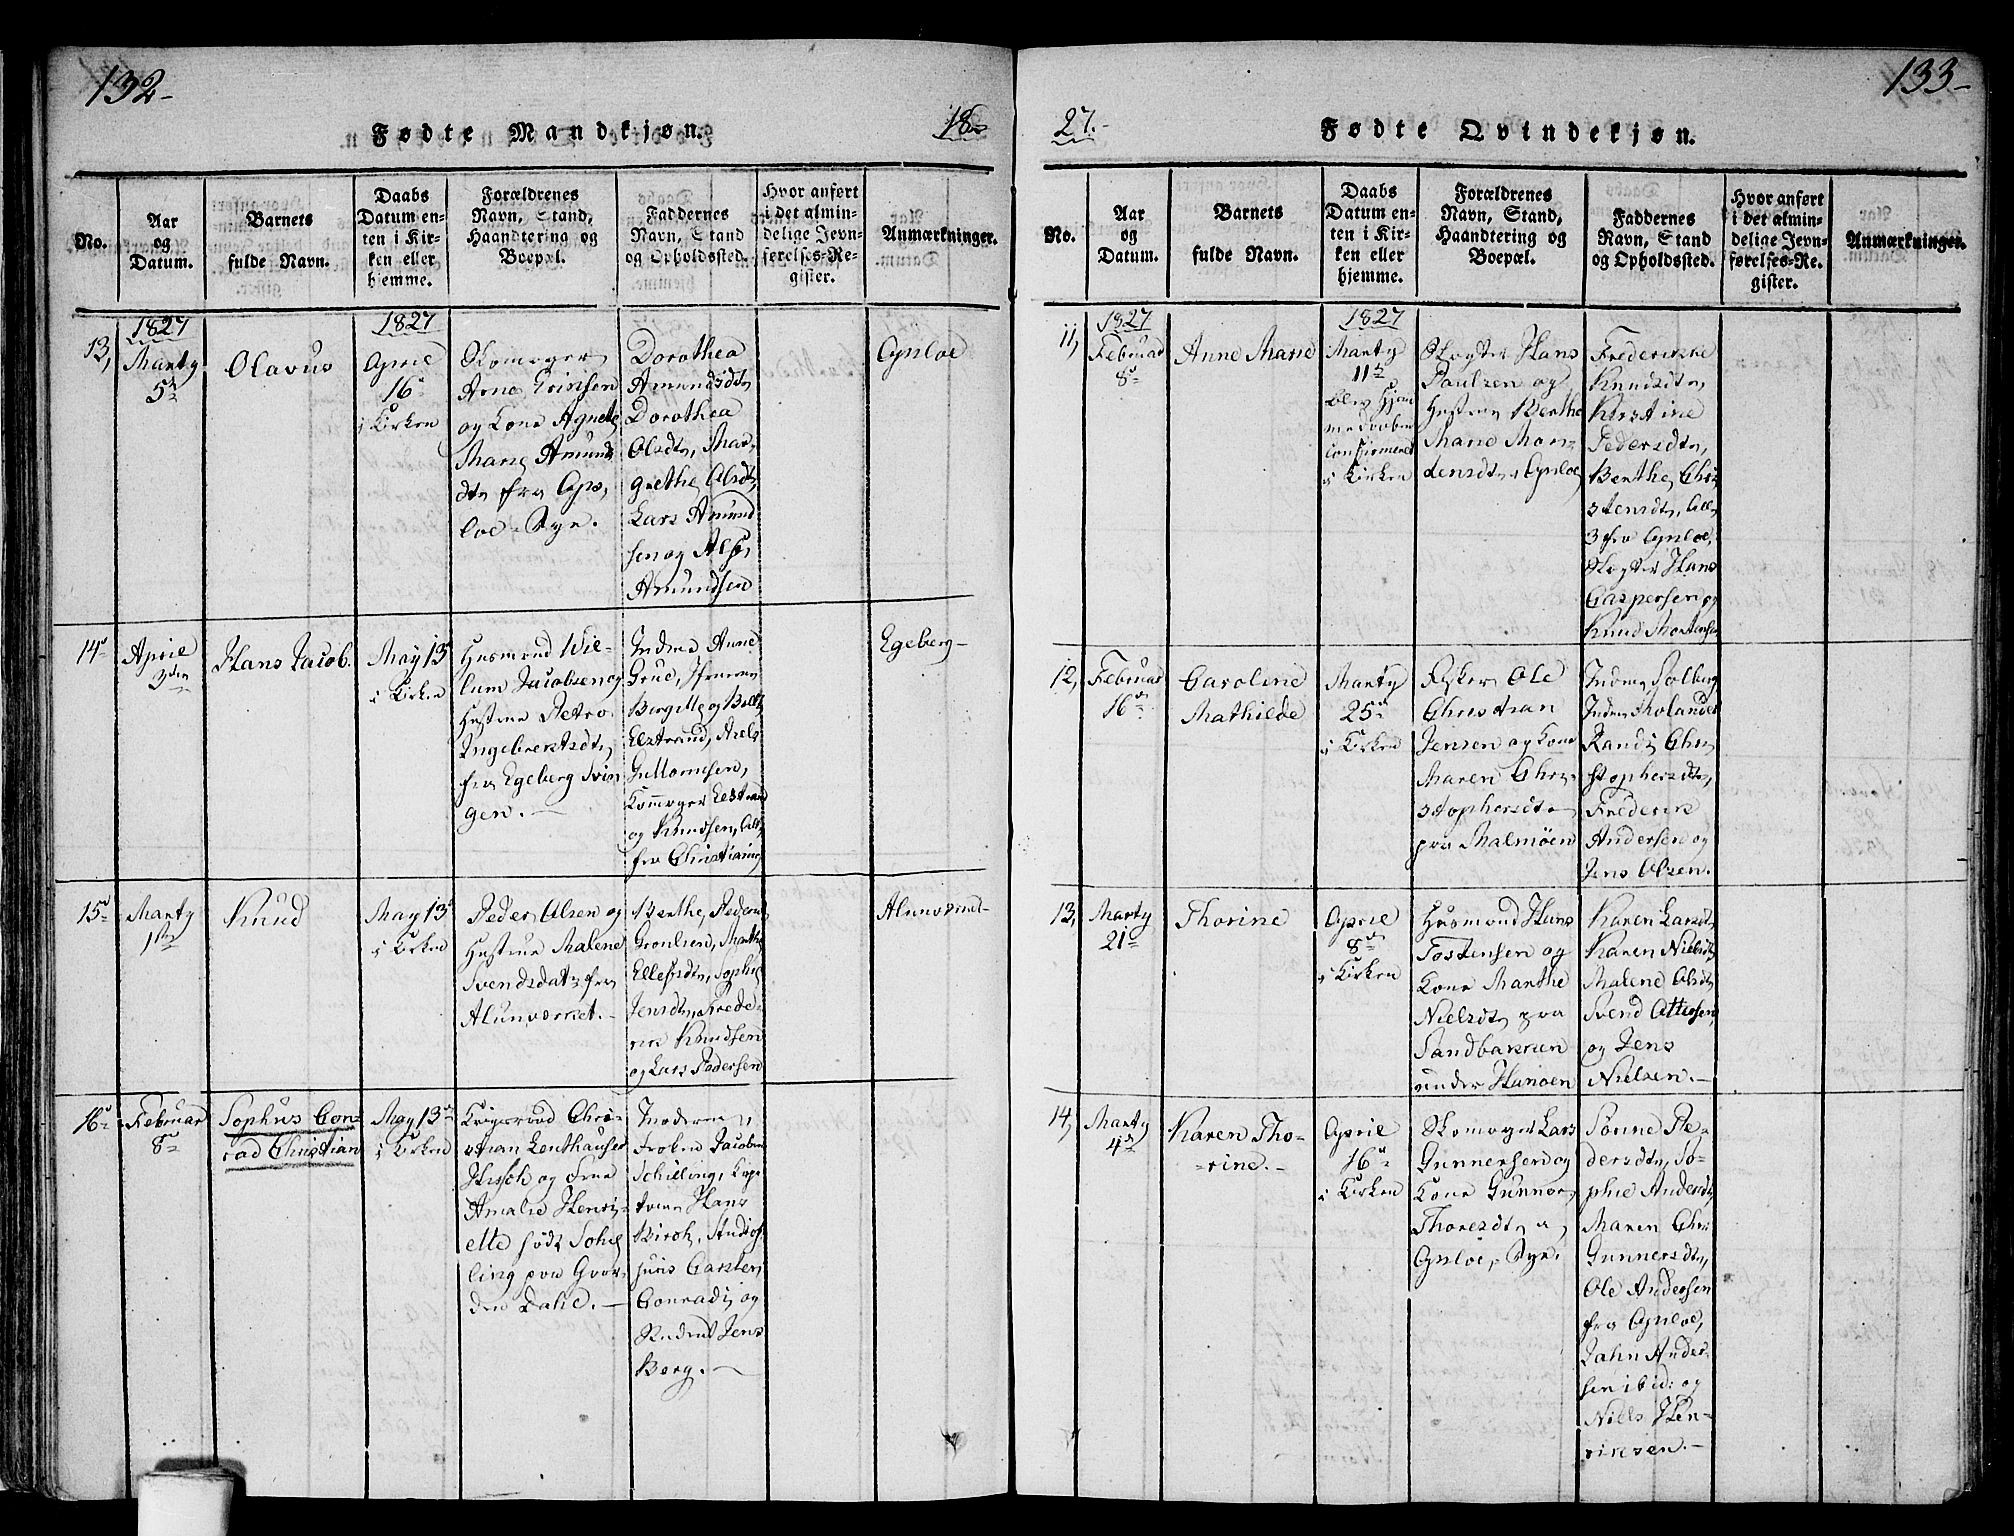 132-
Fødte Mandkjøn.
18-
No.
Aar
og
Datum.
Barnets
fulde Navn.
Daabs
Datum en-
ten i Kir-
ken eller
hjemme.
Forældrenes
Navn, Stand,
Haandtering og
Boepæl.
Faddernes
Navn, Stand
og Opholdssted.
Hvor anført
i det almin-
delige Jevn-
førelses-Re-
gister.
Anmærkninger.
13,
1827
Marty
5te
Olavus
1827
April
16
i Kirken
Skomager
Arne
og Kone Agnete
Marie Amunds
dtr fra Op
loe Bye.
Dorothea
Amundsdtr
Dorothea
Olsdtr, Mar-
grethe Olsdtr,
Lars Amund
sen og
Amundsen
Opsloe
14
April
3den
Hans Jacob.
May 13
i Kirken
Husmand Wil-
lum Jacobsen og
Hustrue Petro
Ingebretsdtr
fra Egeberg Svin
gen.
Anne
Bergitte og
Elstrand,
Guttormsen,
Elstrand
og Knudsen, alle
fra Christiania
Egeberg-
15
Marty
1ste
Knud
May 13
i Kirken
Peder Olsen og
Hustrue Malene
Svendsdatr fra
Alunværket.-
Berthe Peders
Marthe
Ellefsdtr, Sophie
Jensdtr, Frede-
rik Knudsen
og Lars Pedersen
Alunværket-
16
Februar
8
Sophus Con-
rad Christian
May 13
i Kirken
Krigsraad Chri-
stian Lenthauser
Hirsch og Frue
Amalie Henri-
ette født Schil
ling paa Gver
den Dahl.-
Moderen,
Frøken Jacobine
Schilling, Cap-
tain Hans
Birch,
juris Carsten
Conradi og
Student Jens
Berg.-
133-
27.-
Fødte Qvindekjøn.
No.
Aar
og
Datum.
Barnets
fulde Navn.
Daabs
Datum en-
ten i Kir-
ken eller
hjemme.
Forældrenes
Navn, Stand,
Haandtering og
Boepæl.
Faddernes
Navn, Stand
og Opholdssted.
Hvor anført
i det almin-
delige Jevn-
førelses-Re-
gister.
Anmærkninger.
11,
1827
Februar
8
Anne Marie
1827
Marty
11te
blev Hjem
medøbt
confirmeret
i Kirken
Slagter Hans
Paulsen og
Hustrue Berthe
Marie Mor-
tensdtr, Opsloe
Frederikke
Knudsdtr,
Kirstine
Pedersdtr,
Berthe Chri
stensdtr, alle
3 fra Opsloe,
Slagter Hans
Caspersen og
Knud Mortensen
12,
Februar
16
Caroline
Mathilde
Marty
25
i Kirken
Fisker Ole
Christian
Jensen og Kone
Maren Chri-
stophersdtr
paa Malmøen
Solberg
Molander
Randi Chri
stophersdtr,
Frederik
Andersen og
Jens Olsen.
13,
Marty
21
Thorine
April
8
i Kirken
Husmand Hans
Tostensen og
Kone Marthe
Nielsdtr paa
Sandbakken
under
Karen Larsdtr
Karen Nielsdtr
Malene Olsdtr
Svend Ottersen
og Jens
Nielsen.-
14,
Marty
4
Karen Tho-
-rine.-
April
16
i Kirken
Skomager Lars
Gunnersen og
Kone Gunnor
Thoresdtr
Opsloe, Bye.
Sønne Pe-
dersdtr, So-
phie Andersdtr
Maren Chri
Gunnersdtr,
Ole Andersen
fra Opsloe,
Jahn Ander-
sen ibid: og
Niels Hen-
riksen.-